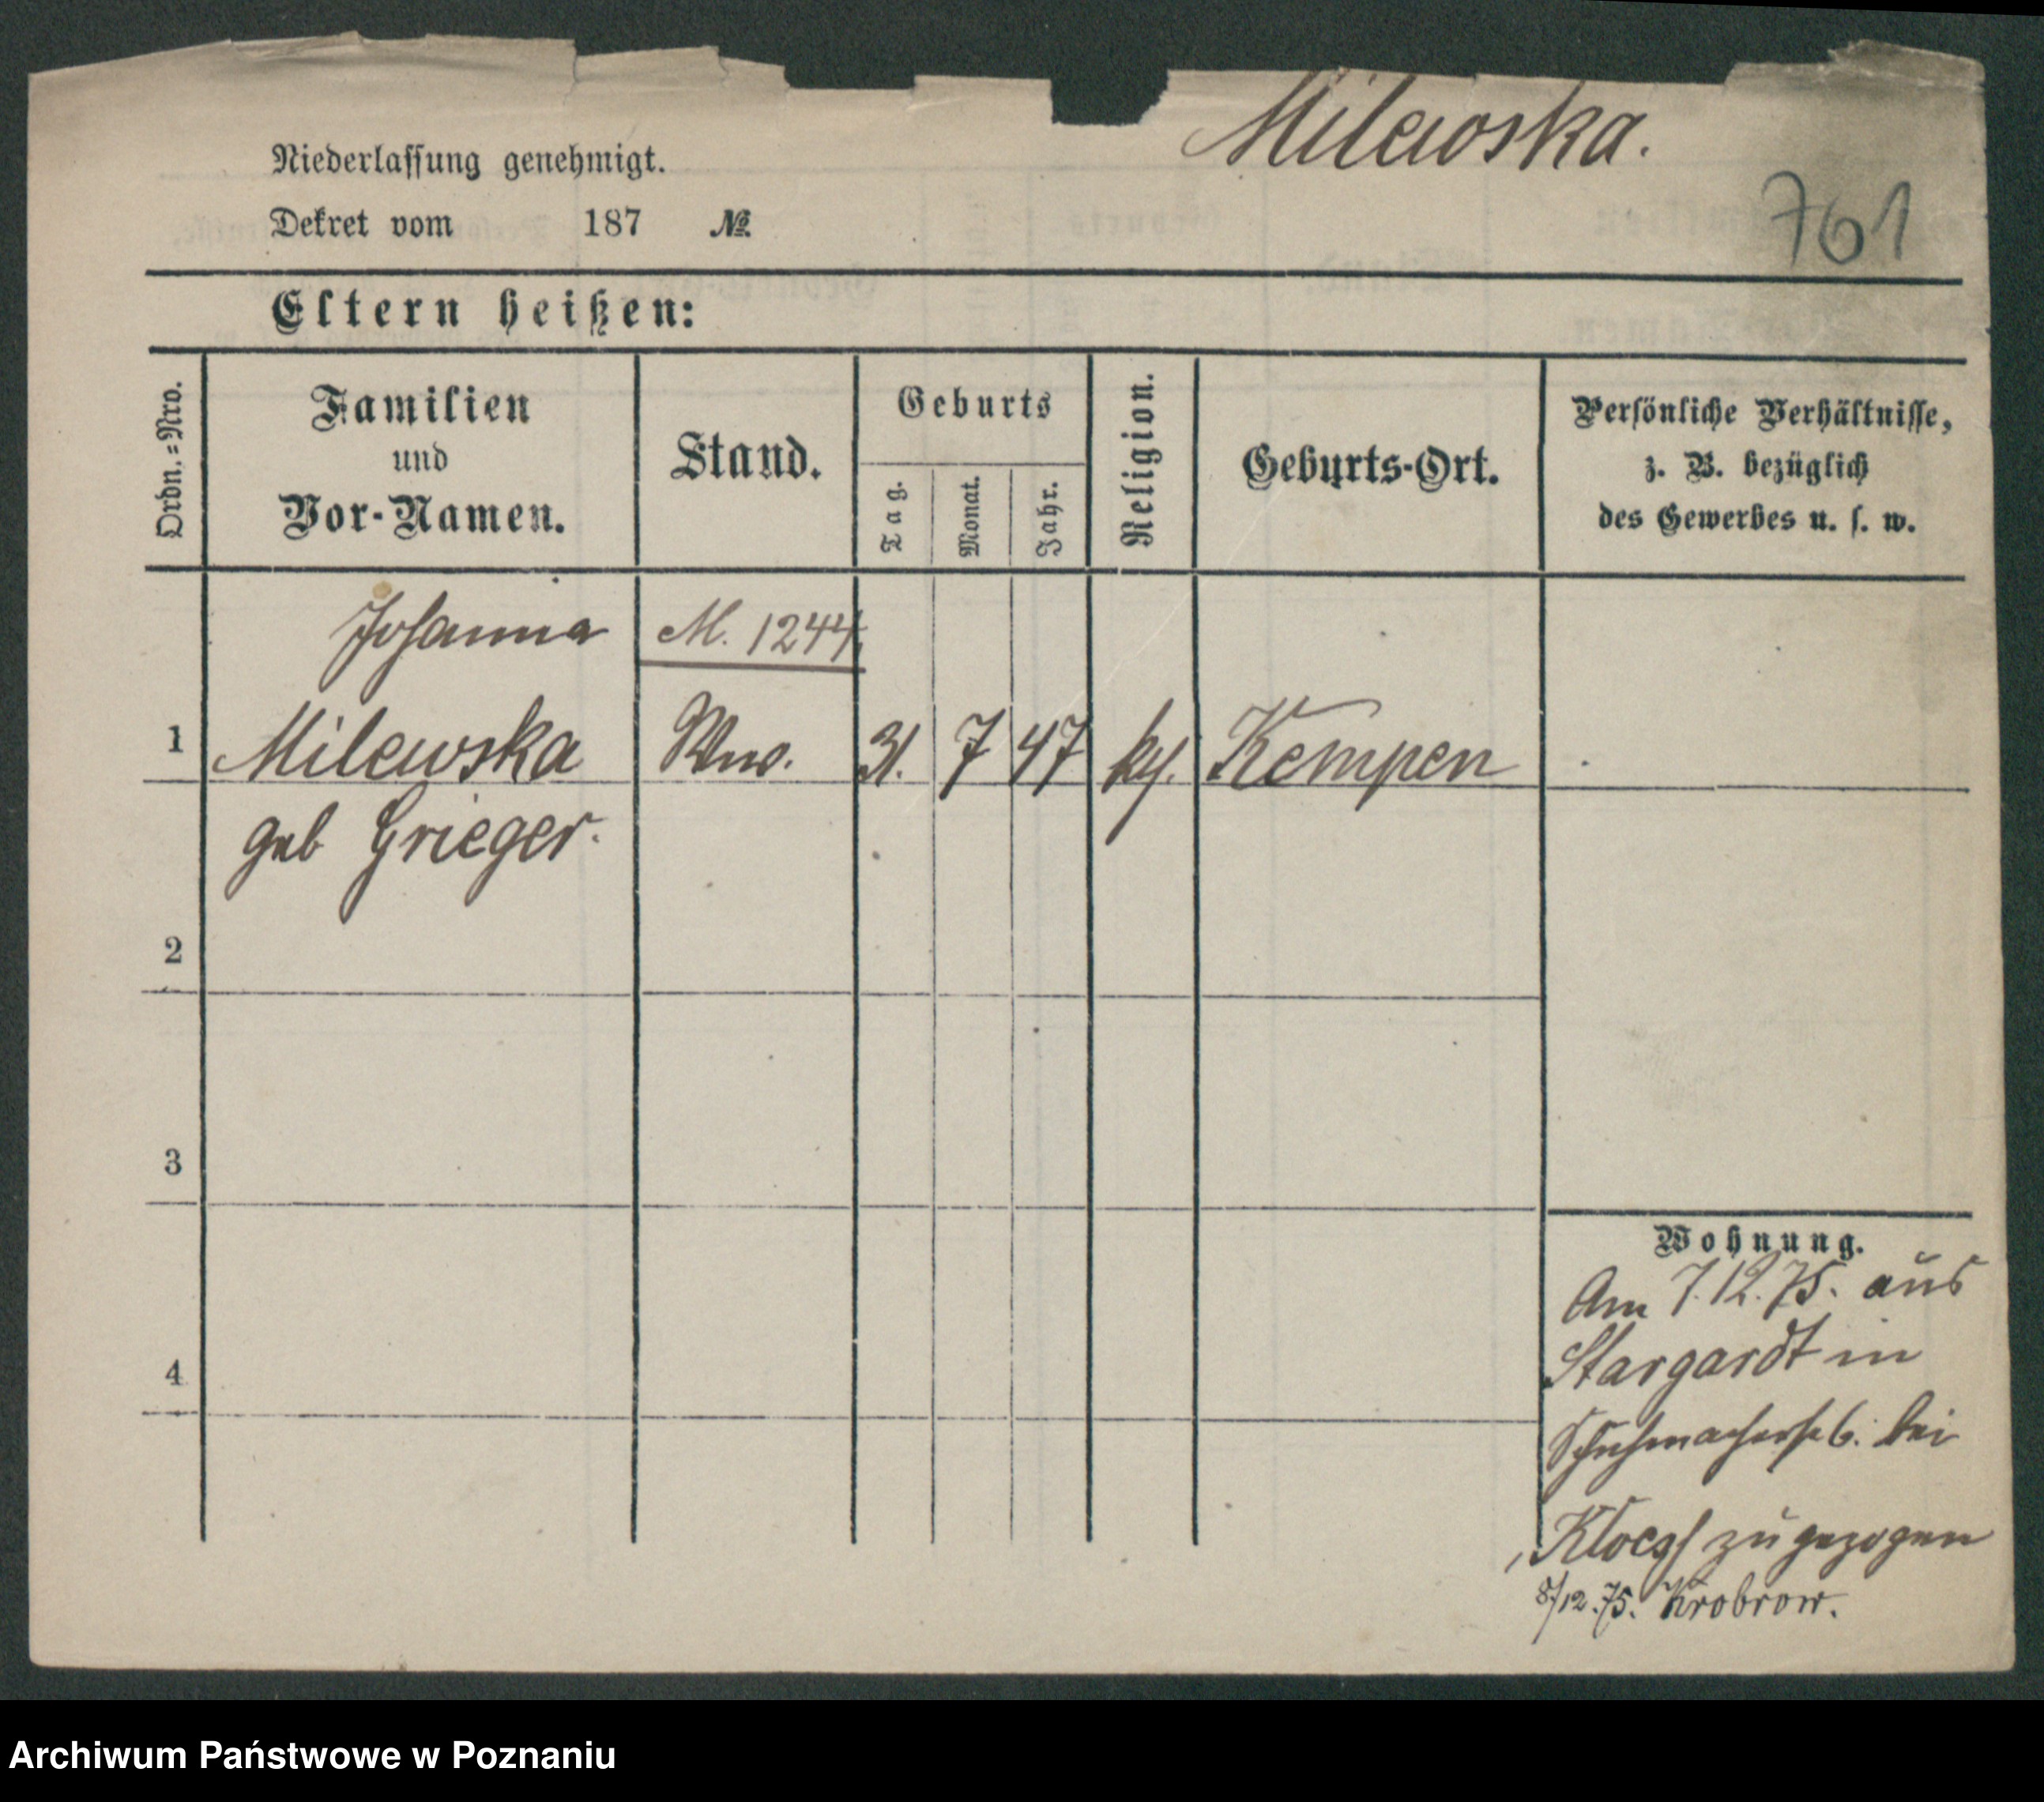 Milewska.
761
Niederlassung genehmigt.
Dekret vom 187 №
Eltern heißen:
Ordn.=Nro.
Familien
und
Vor-Namen.
Stand.
Geburts
Tag.
Monat.
Jahr.
Religion.
Geburts-Ort.
Persönliche Verhältnisse,
z. B. bezüglich
des Gewerbes u. s. w.
Johanna M. 1244
1 Milewska Wwe. 31. 7 47 Kempen
geb Grieger.
2
3
4
Wohnung.
Am 7.12.75. aus
Stargardt in
Schuhmacherstr 6. bei
zugezogen
8/12.75. Krobrow.
Archiwum Państwowe w Poznaniu